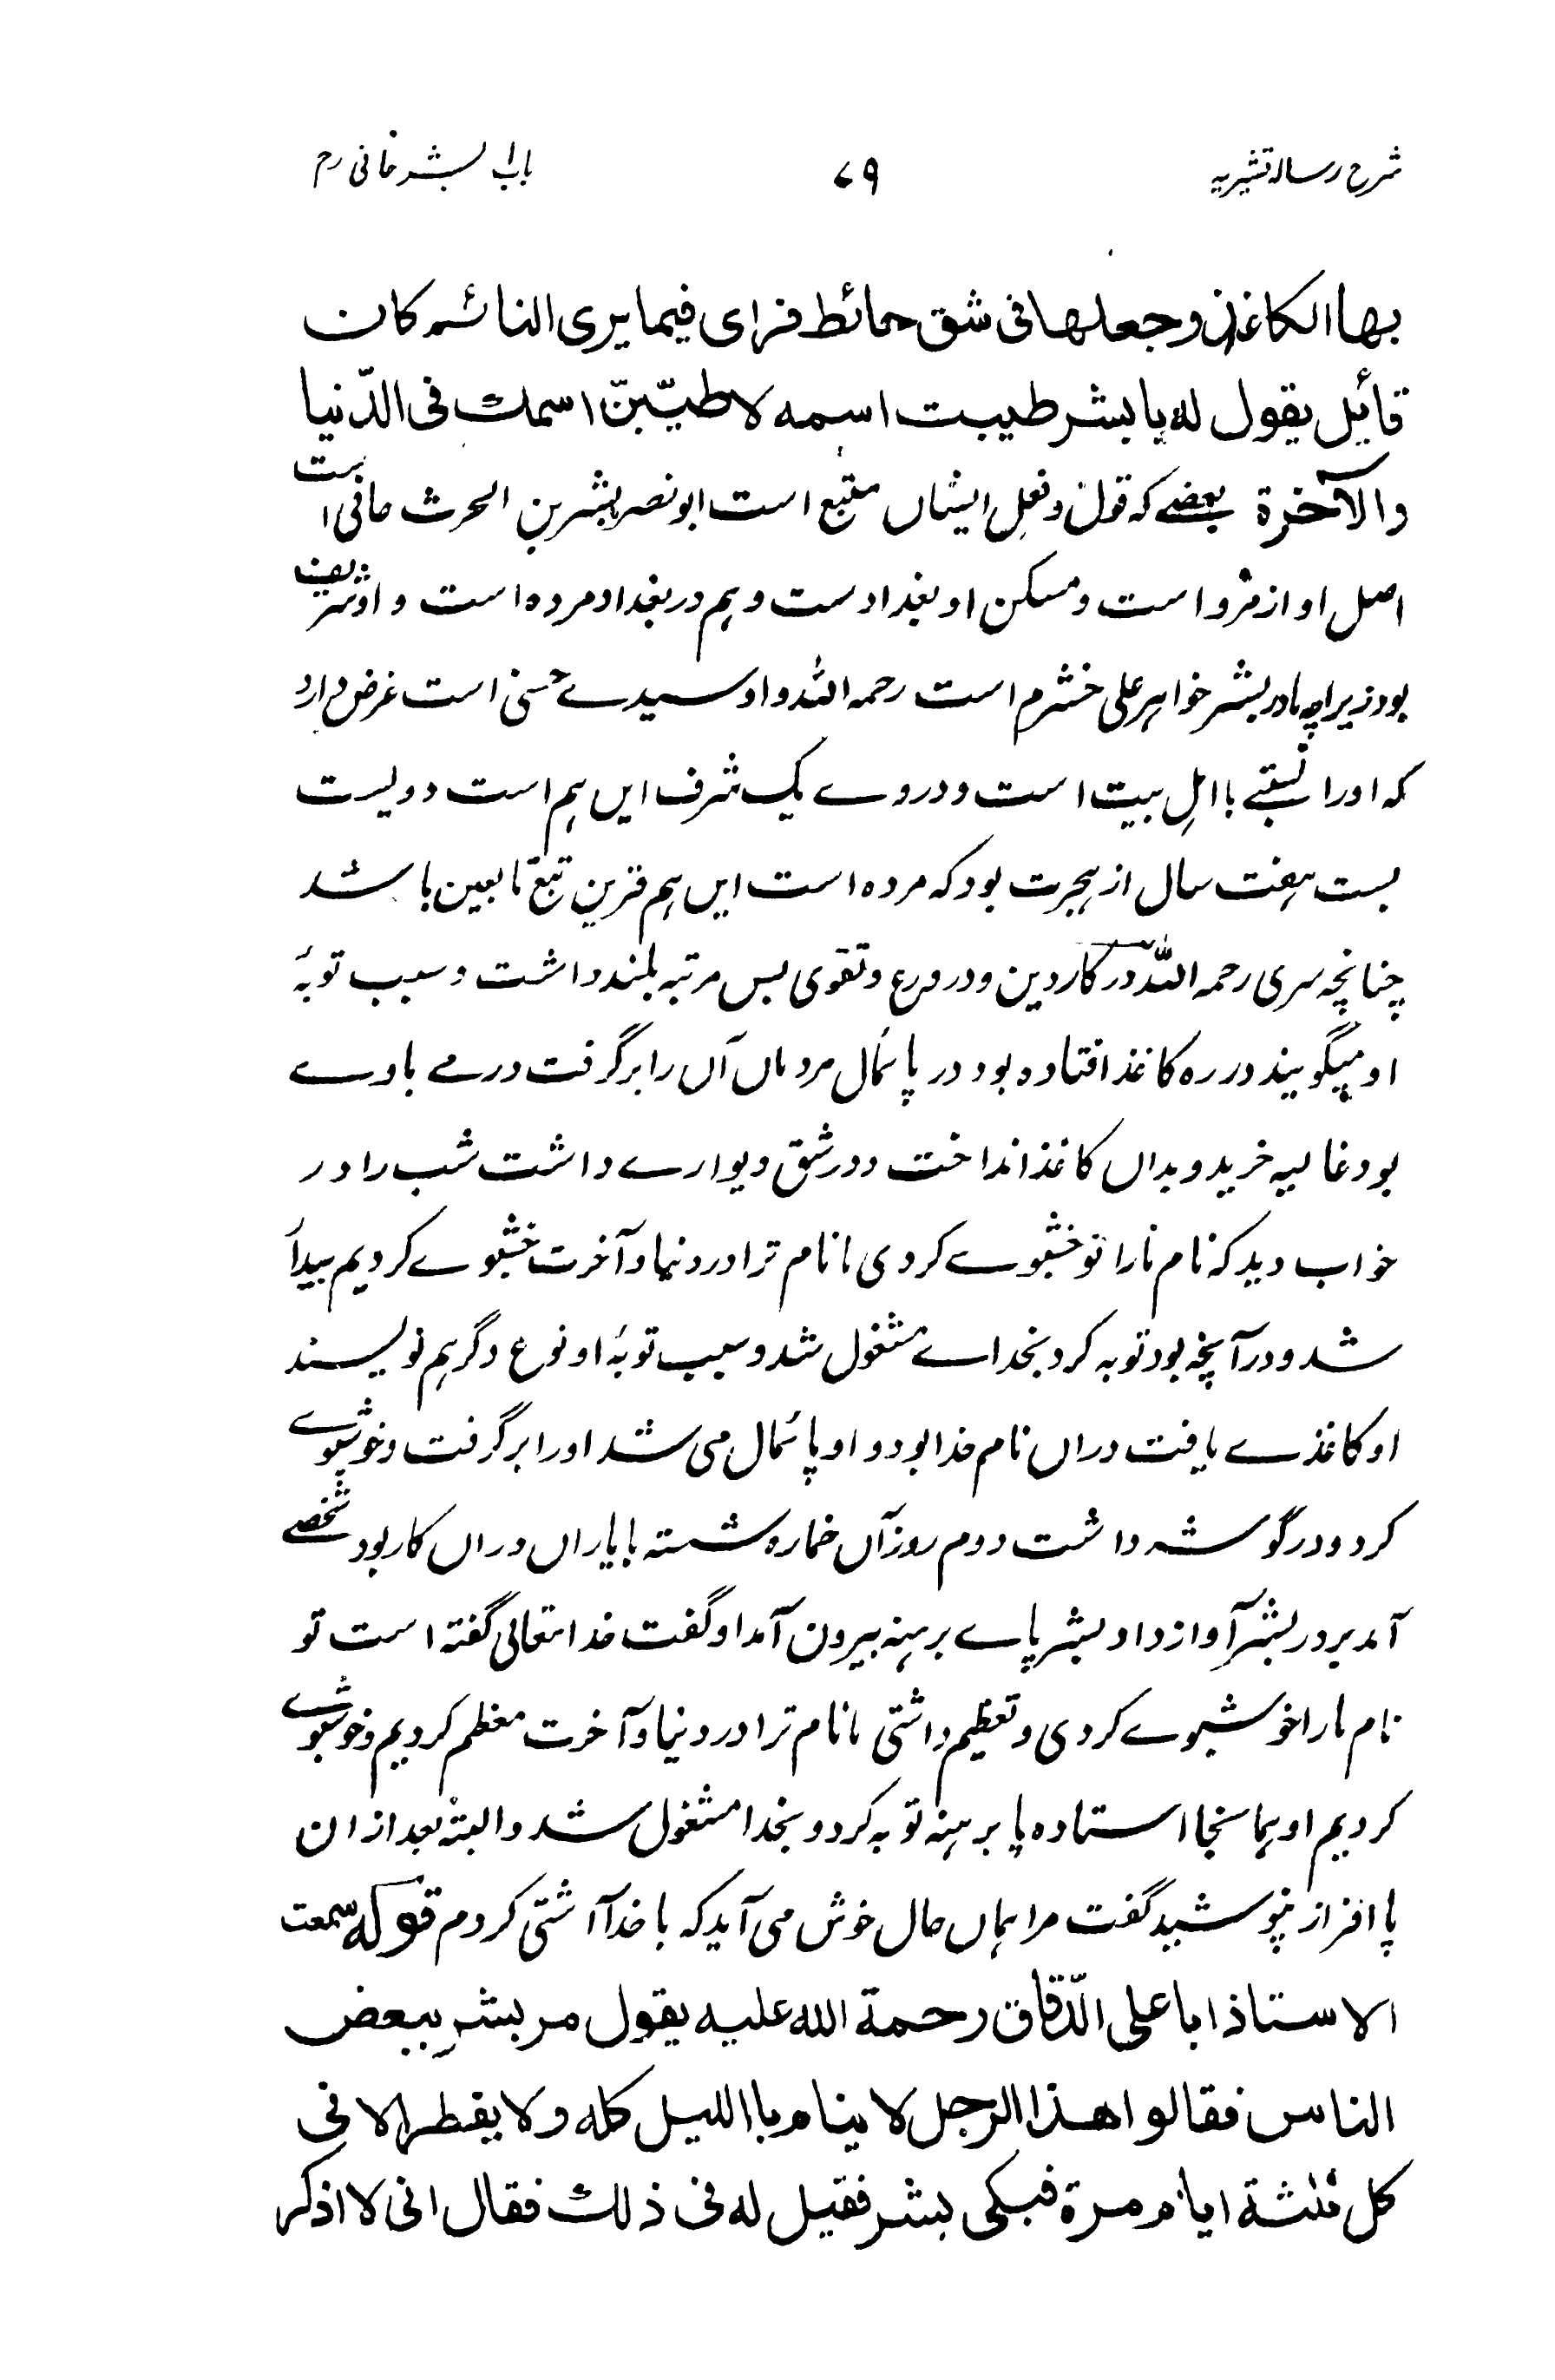 شرح رسالہ قشیریہ ۷۹ باب بشر حافی رح
بها الکاغذ وجعلها فی شق حائط فرای فیما یری النائم کان
قائل یقول له یا بشر طیبت اسمه لاطیّبنّ اسمك فی الدّنیا
والآخرة بعضے کہ قول و فعل ایشاں متبع است ابو نصر بشر بن الحرث حافی است
اصل او از مرو است و مسکن او بغداد ست و ہم در بغداد مردہ است و او شریف
بود زیراچہ مادر بشر خواہر علی خشرم است رحمہ اللہ و او سیدے حسنی است غرض دارد
کہ او را نسبتے با اہل بیت است و دروے یک شرف ایں ہم است دو لیست
بست ہفت سال از ہجرت بود کہ مردہ است ایں ہم قرین تبع تابعین باشد
چنانچہ سری رحمہ اللہ در کار دین و در ورع و تقوی بس مرتبہ بلند داشت و سبب توبۂ
او میگویند در رہ کاغذ افتادہ بود در پائمال مردماں آں را برگرفت درمے باوے
بود غالیہ خرید و بداں کاغذ انداخت و در شق دیوارے داشت شب را در
خواب دید کہ نام مارا تو خشبوے کردی ما نام ترا در دنیا و آخرت خشبوے کردیم بیدار
شد و در آنچہ بود توبہ کرد بخداے مشغول شد و سبب توبۂ او نوع دگر ہم نویسند
او کاغذے یافت دراں نام خدا بود و او پائمال می شد او را برگرفت و خوشبوے
کرد و در گوشہ داشت دوم روز آں خمارہ شستہ با یاراں دراں کار بود شخصے
آمد بر در بشر آواز داد بشر پاے برہنہ بیرون آمد او گفت خدا تعالی گفتہ است تو
نام مارا خوشبوے کردی و تعظیم داشتی ما نام ترا در دنیا و آخرت معظم کردیم و خوشبوے
کردیم او ہمانجا استادہ پا برہنہ توبہ کرد و بخدا مشغول شد و البتہ بعد ازان
پا افزار نپوشید گفت مرا ہماں حال خوش می آید کہ با خدا آشتی کردم قوله سمعت
الاستاذ ابا علی الدّقاق رحمة الله علیه یقول مر بشر ببعض
الناس فقالوا هذا الرجل لا ینام باللیل کله ولا یفطر الا فی
کل ثلثة ایام مرة فبکی بشر فقیل له فی ذلك فقال انی لا اذکر